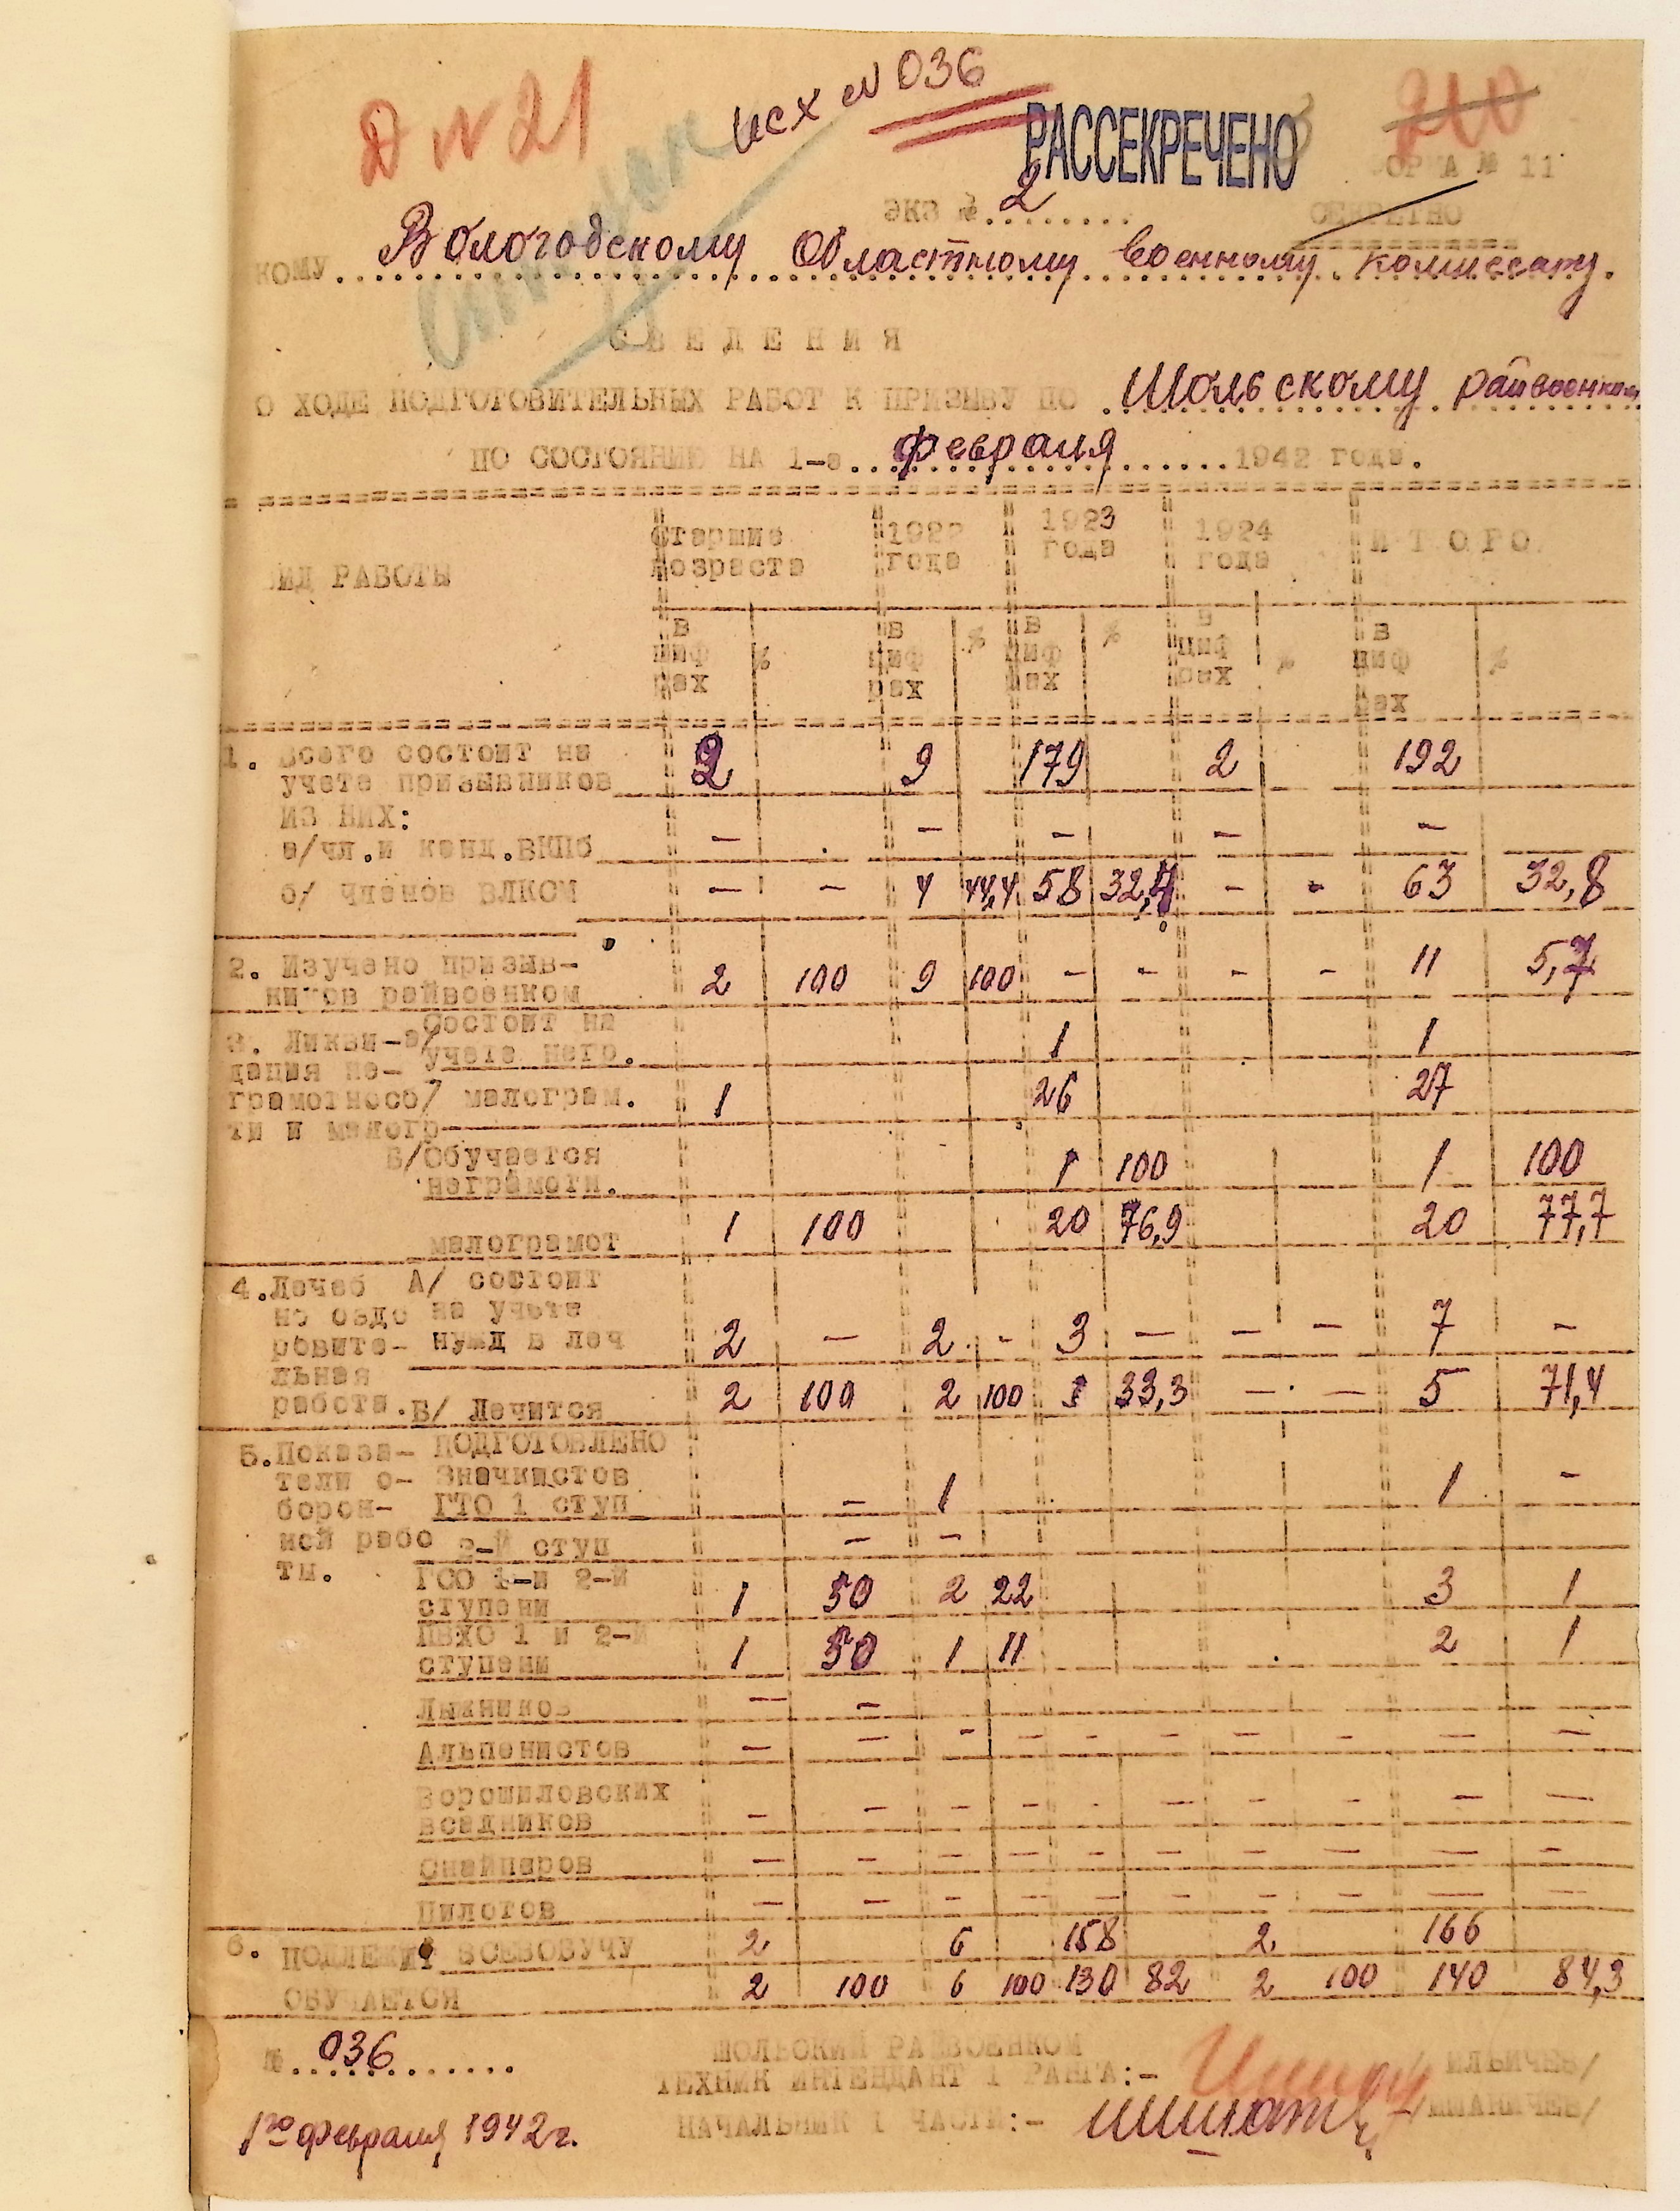 Д № 21
исх № 036
РАССЕКРЕЧЕНО
210
ФОРМА № 11
ЭКЗ № 2
СЕКРЕТНО
КОМУ. Вологодскому Областному Военному Комиссару.
СВЕДЕНИЯ
О ХОДЕ ПОДГОТОВИТЕЛЬНЫХ РАБОТ К ПРИЗЫВУ ПО Шольскому райвоенком
ПО СОСТОЯНИЮ НА 1-е февраля 1942 года.
ВИД РАБОТЫ | Старшие возраста | 1922 года | 1923 года | 1924 года | И Т О Г О
В циф рах | % | В циф рах | % | В циф рах | % | В циф рах | % | В циф рах | %
1. Всего состоит на
учете призывников 2 9 179 2 192
из них:
а/чл.и канд.ВКПб — — — — —
б/ членов ВЛКСМ — — 4 44,4 58 32,4 - - 63 32,8
2. Изучено призыв-
ников райвоенком 2 100 9 100 - - - - 11 5,7
3. Ликви-а/Состоит на
учете негр. 1 1
дация не-
грамотносб/ малограм. 1 26 27
ти и малогр
Б/Обучается
неграмотн. 1 100 1 100
малограмот 1 100 20 76,9 20 77,7
4.Лечеб А/ состоит
но оздо на учете
ровите- нужд в леч 2 — 2 - 3 — — — 7 —
льная
работа.Б/ Лечится 2 100 2 100 1 33,3 — — 5 71,4
5.Показа- ПОДГОТОВЛЕНО
тели о- Значкистов
борон- ГТО 1 ступ — 1 1 -
ной рабо 2-й ступ — —
ты. ГСО 1-и 2-й
ступени 1 50 2 22 3 1
ПВХО 1 и 2-й
ступени 1 50 1 11 2 1
Лыжников — —
Альпенистов — — - — - — — - — —
Ворошиловских
всадников — — — — - — — - — —
Снайперов — — — — — — — — — -
Пилотов — — — — — — — — — —
6. ПОДЛЕЖИТ ВСЕВОБУЧУ 2 6 158 2 166
ОБУЧАЕТСЯ 2 100 6 100 130 82 2 100 140 84,3
№ 036
ШОЛЬСКИЙ РАЙВОЕНКОМ
ТЕХНИК ИНТЕНДАНТ 1 РАНГА:- /ИЛЬИЧЕВ/
НАЧАЛЬНИК 1 ЧАСТИ:-
1го февраля 1942г.